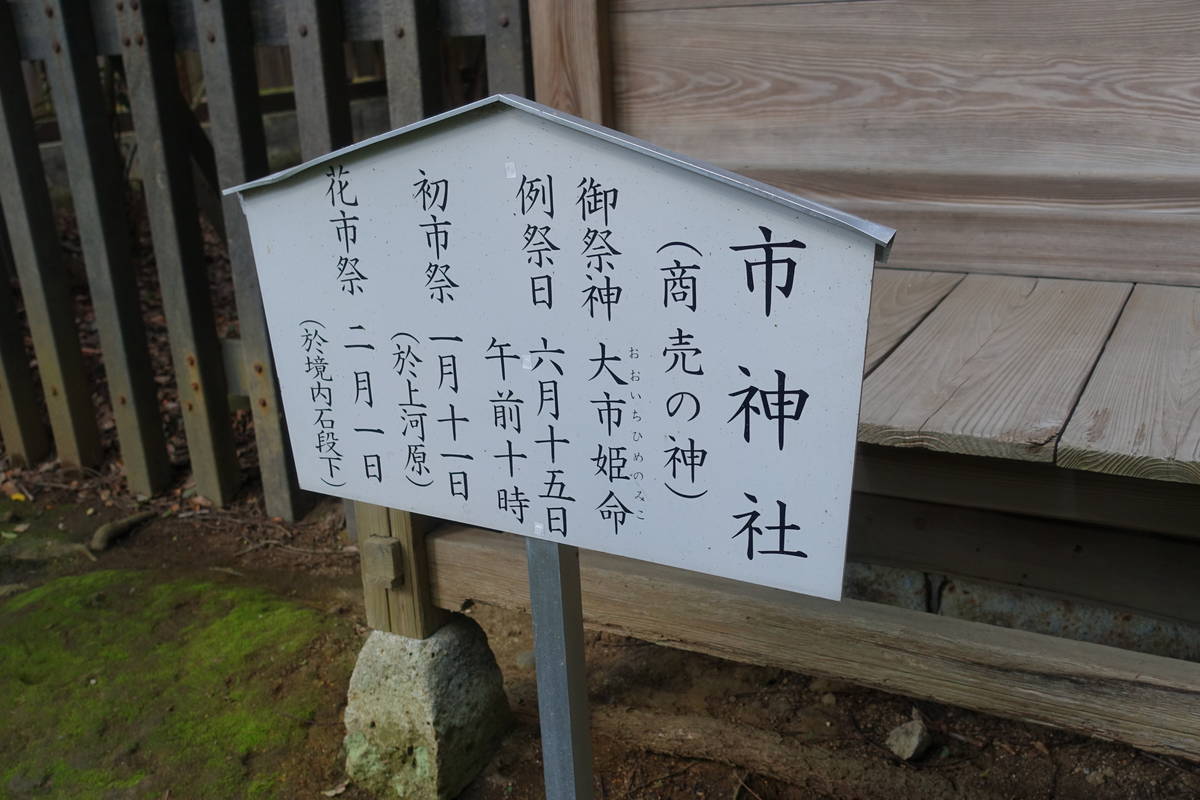 市神社
(商売の神)
御祭神 大市姫命
おおいちひめのみこ
例祭日 六月十五日
午前十時
初市祭 一月十一日
(於上河原)
花市祭 二月一日
(於境内石段下)